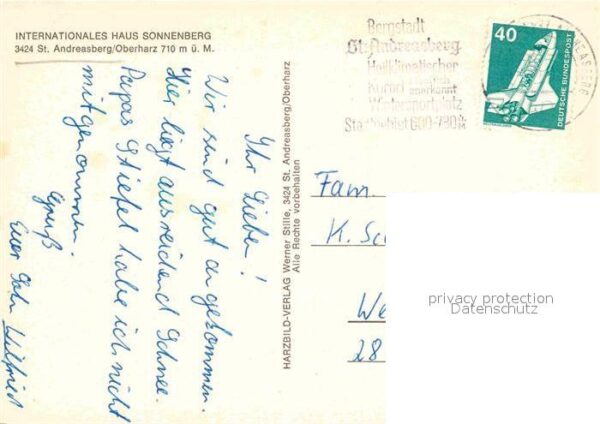 INTERNATIONALES HAUS SONNENBERG
3424 St. Andreasberg/Oberharz 710 m ü. M.
Ihr Lieben!
Wir sind gut angekommen
Hier liegt ausreichend Schnee.
Papas Stiefel habe ich nicht
mitgenommen.
Gruß
Euer Sohn Wilfried
HARZBILD-VERLAG Werner Stille, 3424 St. Andreasberg/Oberharz
Alle Rechte vorbehalten
Bergstadt
St. Andreasberg
Heilklimatischer
Kurort
anerkannt
Wintersportplatz
40
DEUTSCHE BUNDESPOST
Fam.
K. Sc
We
28
privacy protection
Datenschutz